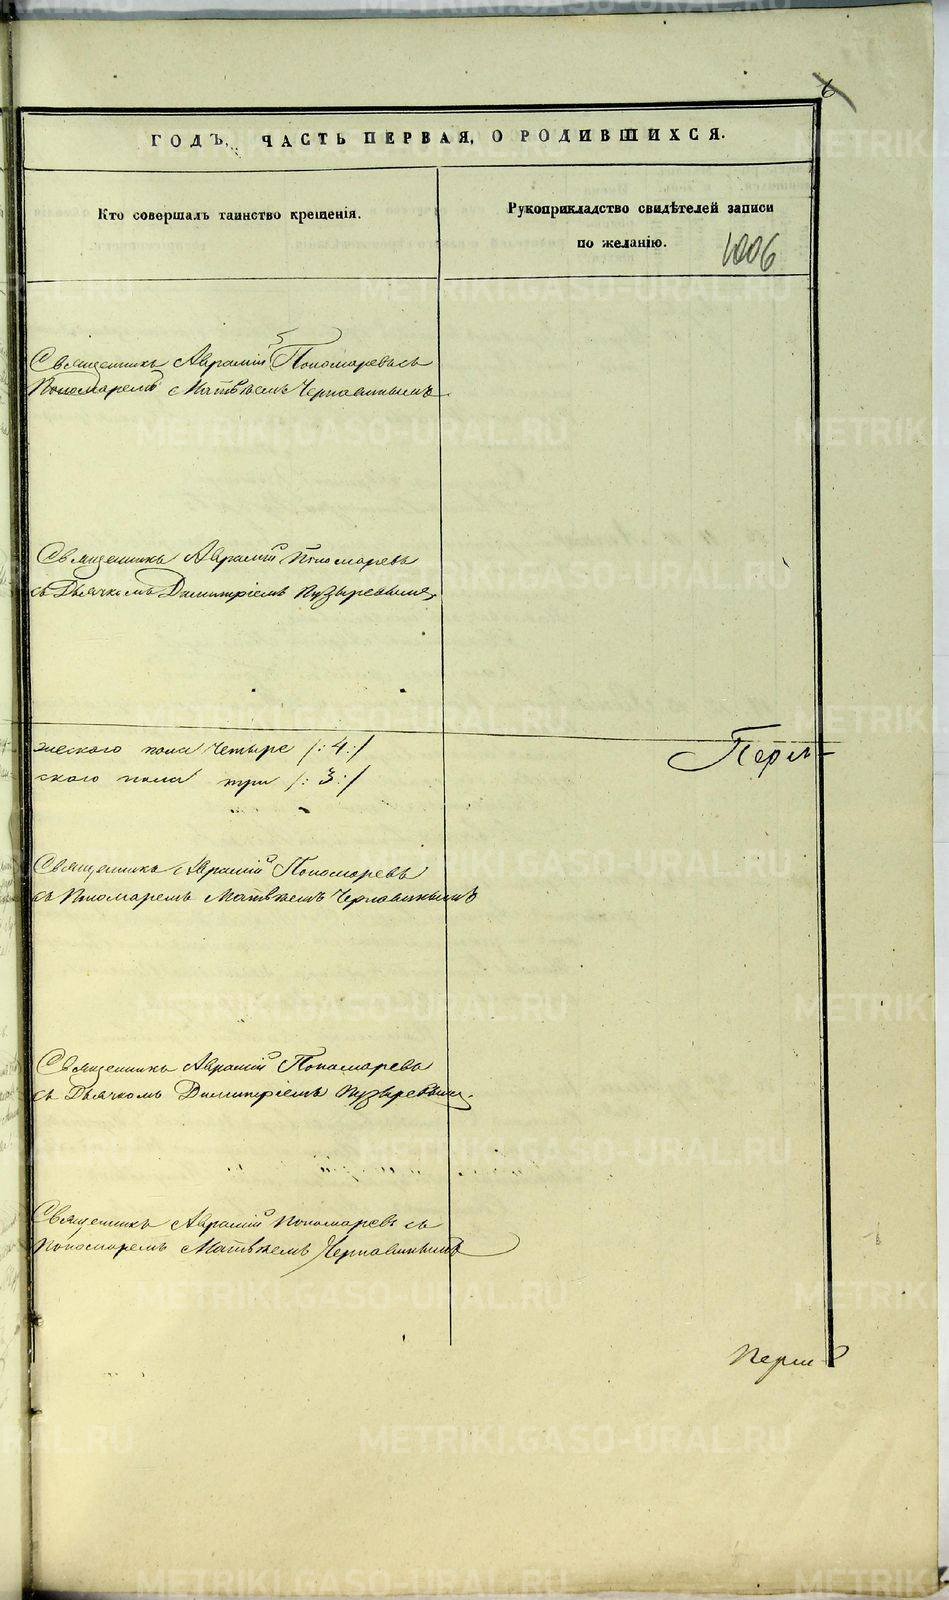 6
ГОДЪ, ЧАСТЬ ПЕРВАЯ, О РОДИВШИХСЯ.
Кто совершалъ таинство крещенія.
Рукоприкладство свидѣтелей записи
по желанію.
1006
Священникъ Аврамій Пономаревъ съ
Пономаремъ Матвѣемъ Чернавинымъ
Священникъ Аврамій Пономаревъ
съ Дьячкомъ Димитріемъ Пузыревымъ
жескаго пола четыре /:4:/
скаго пола три /:3:/
Перм-
Священникъ Аврамій Пономаревъ
съ Пономаремъ Матвѣемъ Чернавинымъ
Священникъ Аврамій Пономаревъ
съ Дьячкомъ Димитріемъ Пузыревым.
Священникъ Аврамій Пономаревъ съ
Пономаремъ Матвѣемъ Чернавинымъ
METRIKI.GASO-URAL.RU